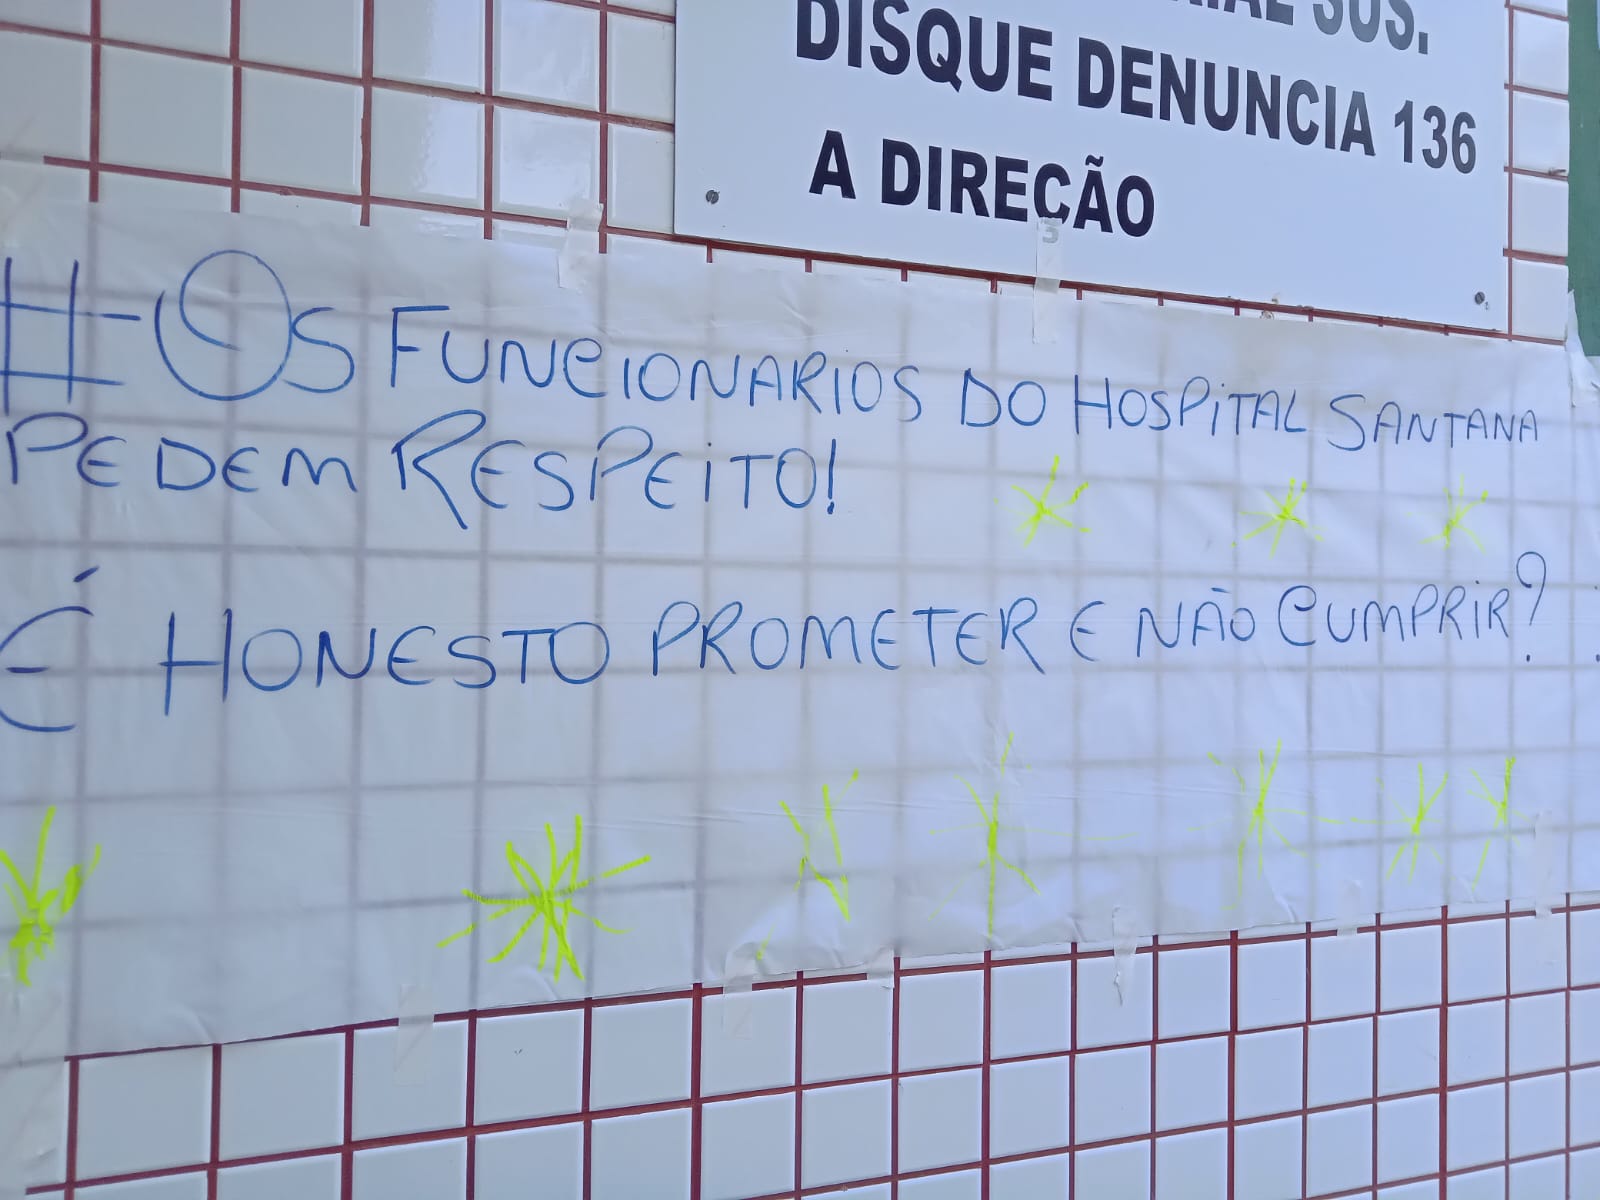 SUS.
DISQUE DENUNCIA 136
A DIREÇÃO
# OS FUNCIONARIOS DO HOSPITAL SANTANA
PEDEM RESPEITO!
É HONESTO PROMETER E NÃO CUMPRIR?